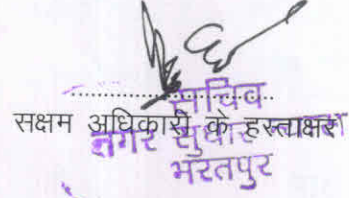 सचिव
सक्षम अधिकारी के हस्ताक्षर
नगर सुधार
भरतपुर